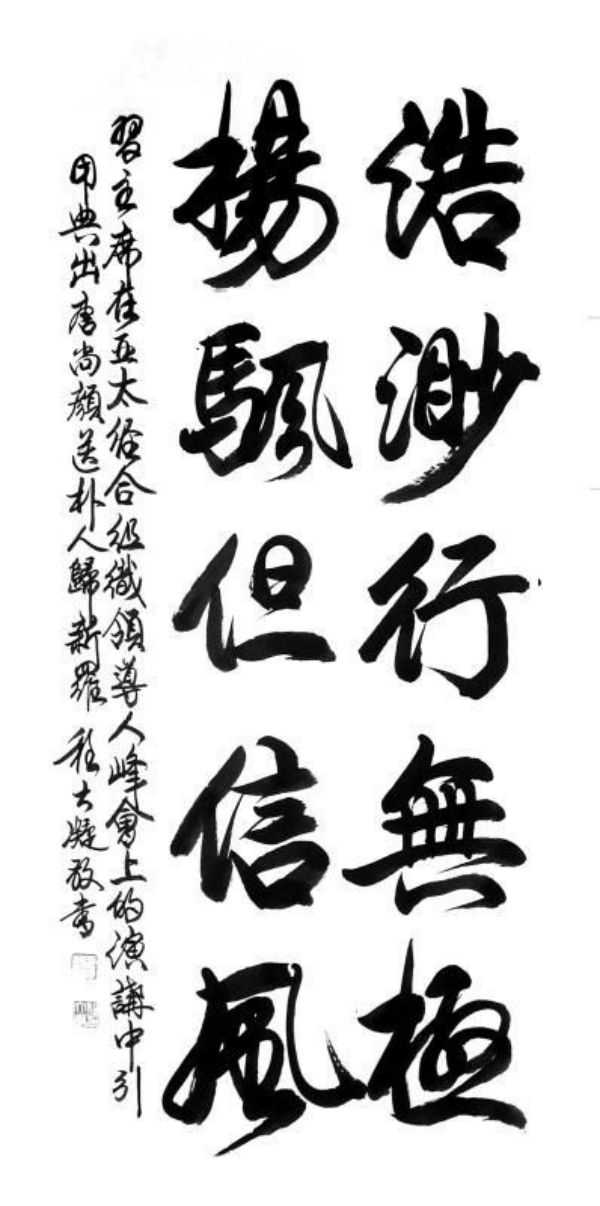 浩渺行無極
揚颿但信風
習主席在亞太經合組織領導人峰會上的演講中引
用典出唐尚顏送朴人歸新羅 敬書